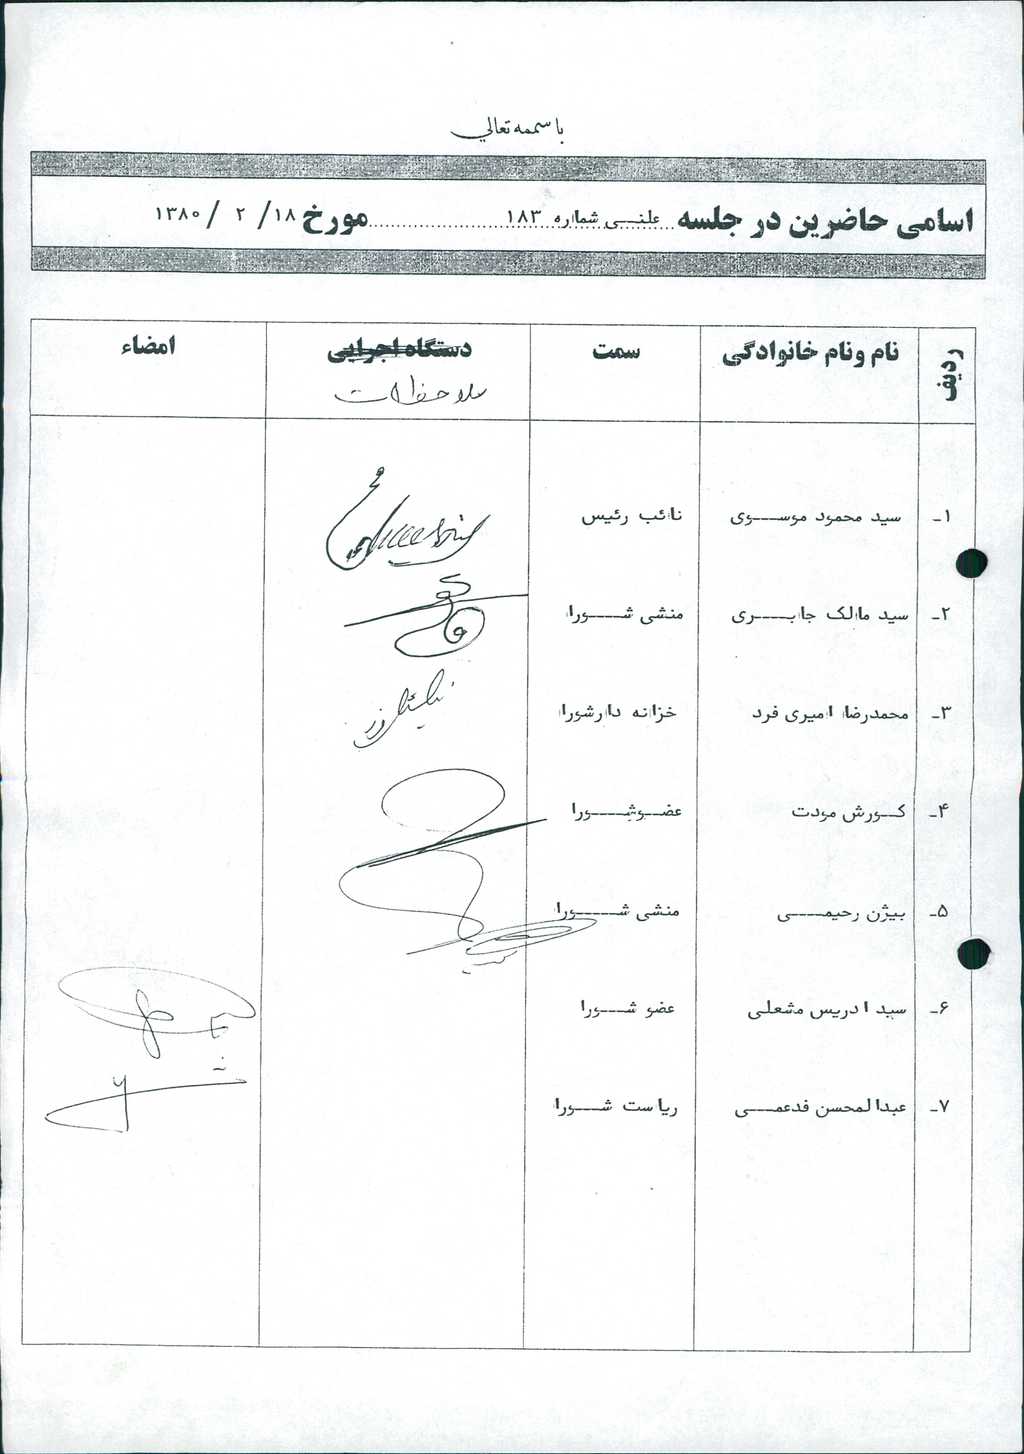 باسمه تعالی
اسامی حاضرین در جلسه علنی شماره ۱۸۳ مورخ ۱۸/ ۲ / ۱۳۸۰
ردیف نام ونام خانوادگی سمت دستگاه اجرایی امضاء
ملاحظات
۱- سید محمود موسوی نائب رئیس
۲- سید مالک جابری منشی شورا
۳- محمدرضا امیری فرد خزانه دارشورا
۴- کورش مودت عضوشورا
۵- بیژن رحیمی منشی شورا
۶- سید ادریس مشعلی عضو شورا
۷- عبدالمحسن فدعمی ریاست شورا